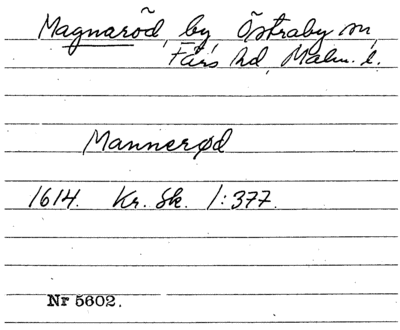 Magnaröd, by, Östraby sn,
Färs hd, Malm. l.
Mannerød
1614. Kr. Sk. 1:377.
Nr 5602.